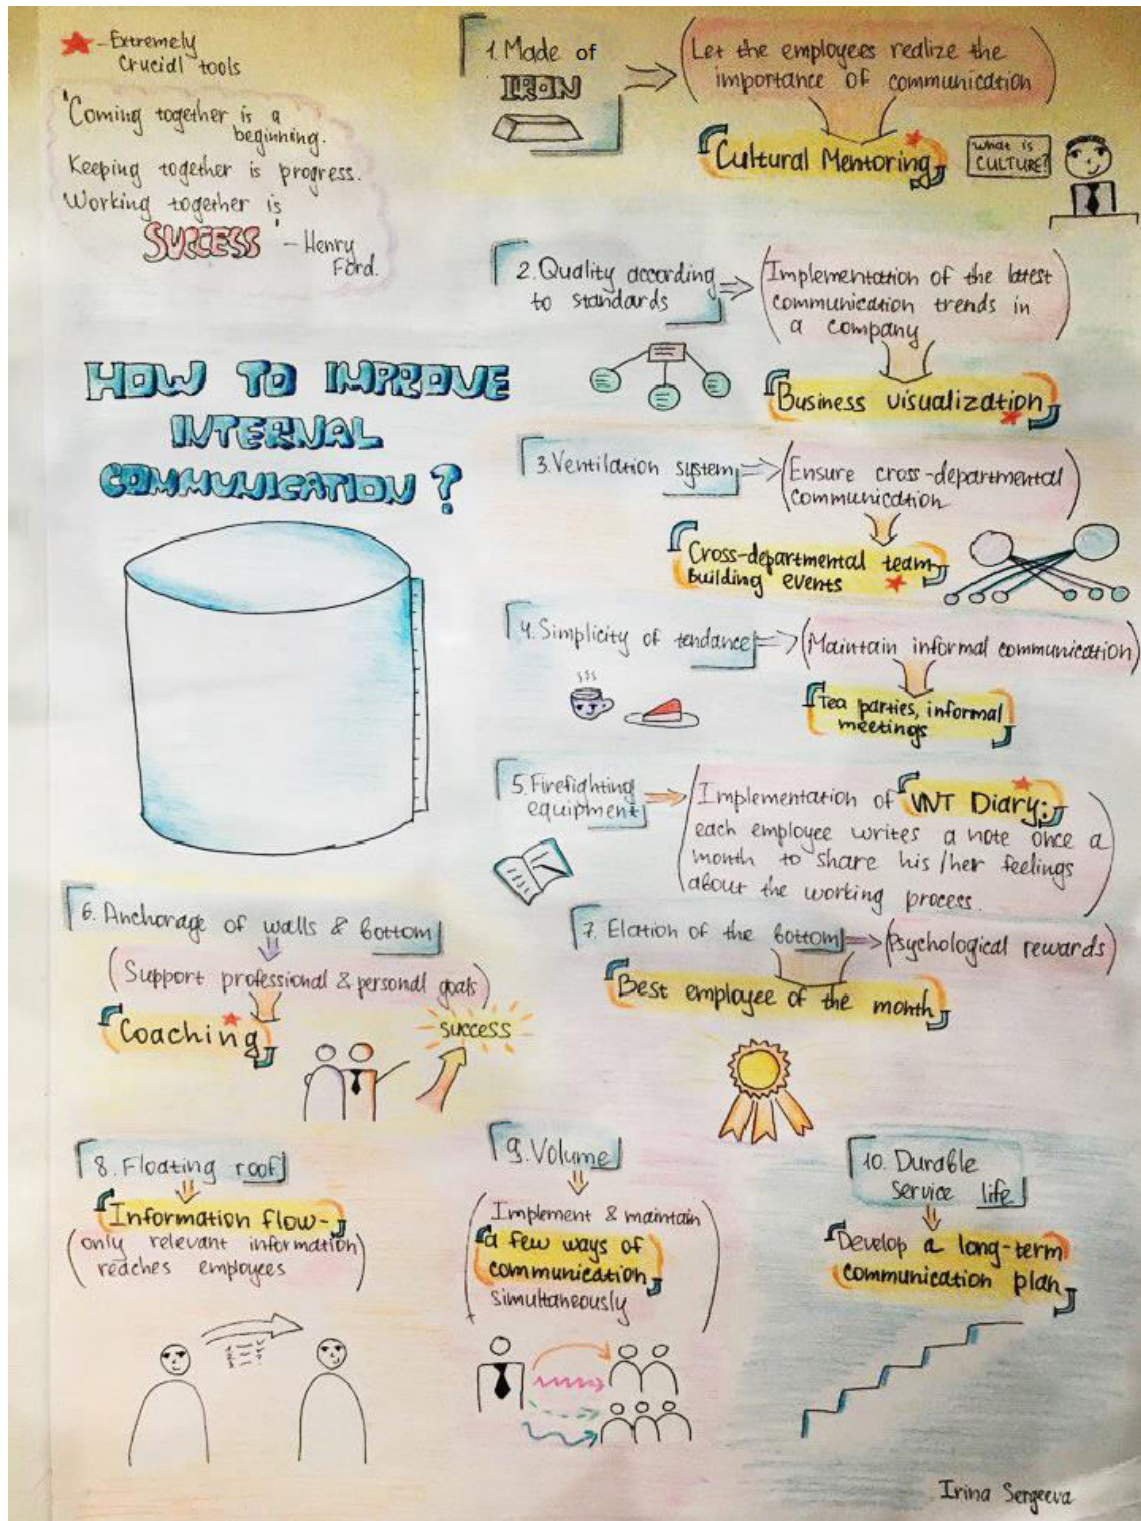 - Extremely
Crucial tools
"Coming together is a
beginning.
Keeping together is progress.
Working together is
SUCCESS" - Henry
Ford.
HOW TO IMPROVE
INTERNAL
COMMUNICATION?
1. Made of
IRON
Let the employees realize the
importance of communication
Cultural Mentoring
What is
CULTURE?
2. Quality according
to standards
Implementation of the latest
communication trends in
a company
Business visualization
3. Ventilation system
Ensure cross-departmental
communication
Cross-departmental team
building events
4. Simplicity of tendance
Maintain informal communication
Tea parties, informal
meetings
5. Firefighting
equipment
Implementation of VNT Diary:
each employee writes a note once a
month to share his/her feelings
about the working process.
6. Anchorage of walls & bottom
(Support professional & personal goals)
Coaching
success
7. Elation of the bottom
(Psychological rewards)
Best employee of the month
8. Floating roof
Information flow-
(only relevant information
reaches employees)
9. Volume
(Implement & maintain
a few ways of
communication
simultaneously)
10. Durable
service life
Develop a long-term
communication plan
Irina Sergeeva